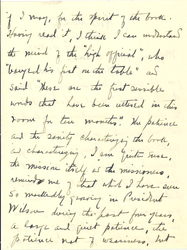 if I may, for the spirit of the book.
Having read it, I think I can understand
the mind of the "high official", who
"banged his fist on the table" and
said "These are the first sensible
words that have been uttered in this
room for two months". The patience
and the sanity characterizing the book,
as characterizing, I am quite sure,
the mission itself & the missioners,
remind me of that which I have seen
so markedly growing in President
Wilson during the past four years,
a large and quiet patience, the
patience not of weariness, but